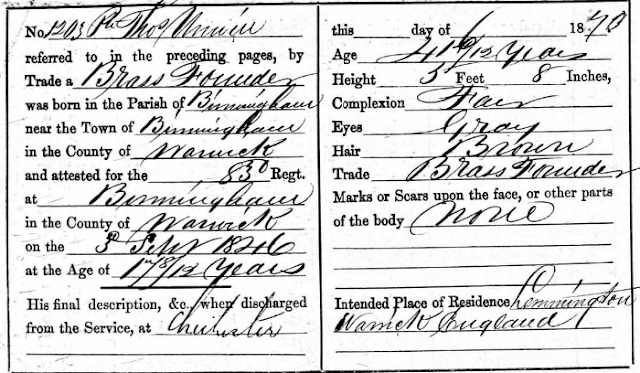 No. 1203 Pte Thos Unwin
referred to in the preceding pages, by
Trade a Brass Founder
was born in the Parish of Birmingham
near the Town of Birmingham
in the County of Warwick
and attested for the 83d Regt.
at Birmingham
in the County of Warwick
on the 3rd Sept 1846
at the Age of 17 8/12 Years
His final description, &c., when discharged
from the Service, at Chichester
this day of 1870
Age 41 /12 Years
Height 5 Feet 8 Inches,
Complexion Fair
Eyes Gray
Hair Brown
Trade Brass Founder
Marks or Scars upon the face, or other parts
of the body None
Intended Place of Residence, Lemmington
Warwick England